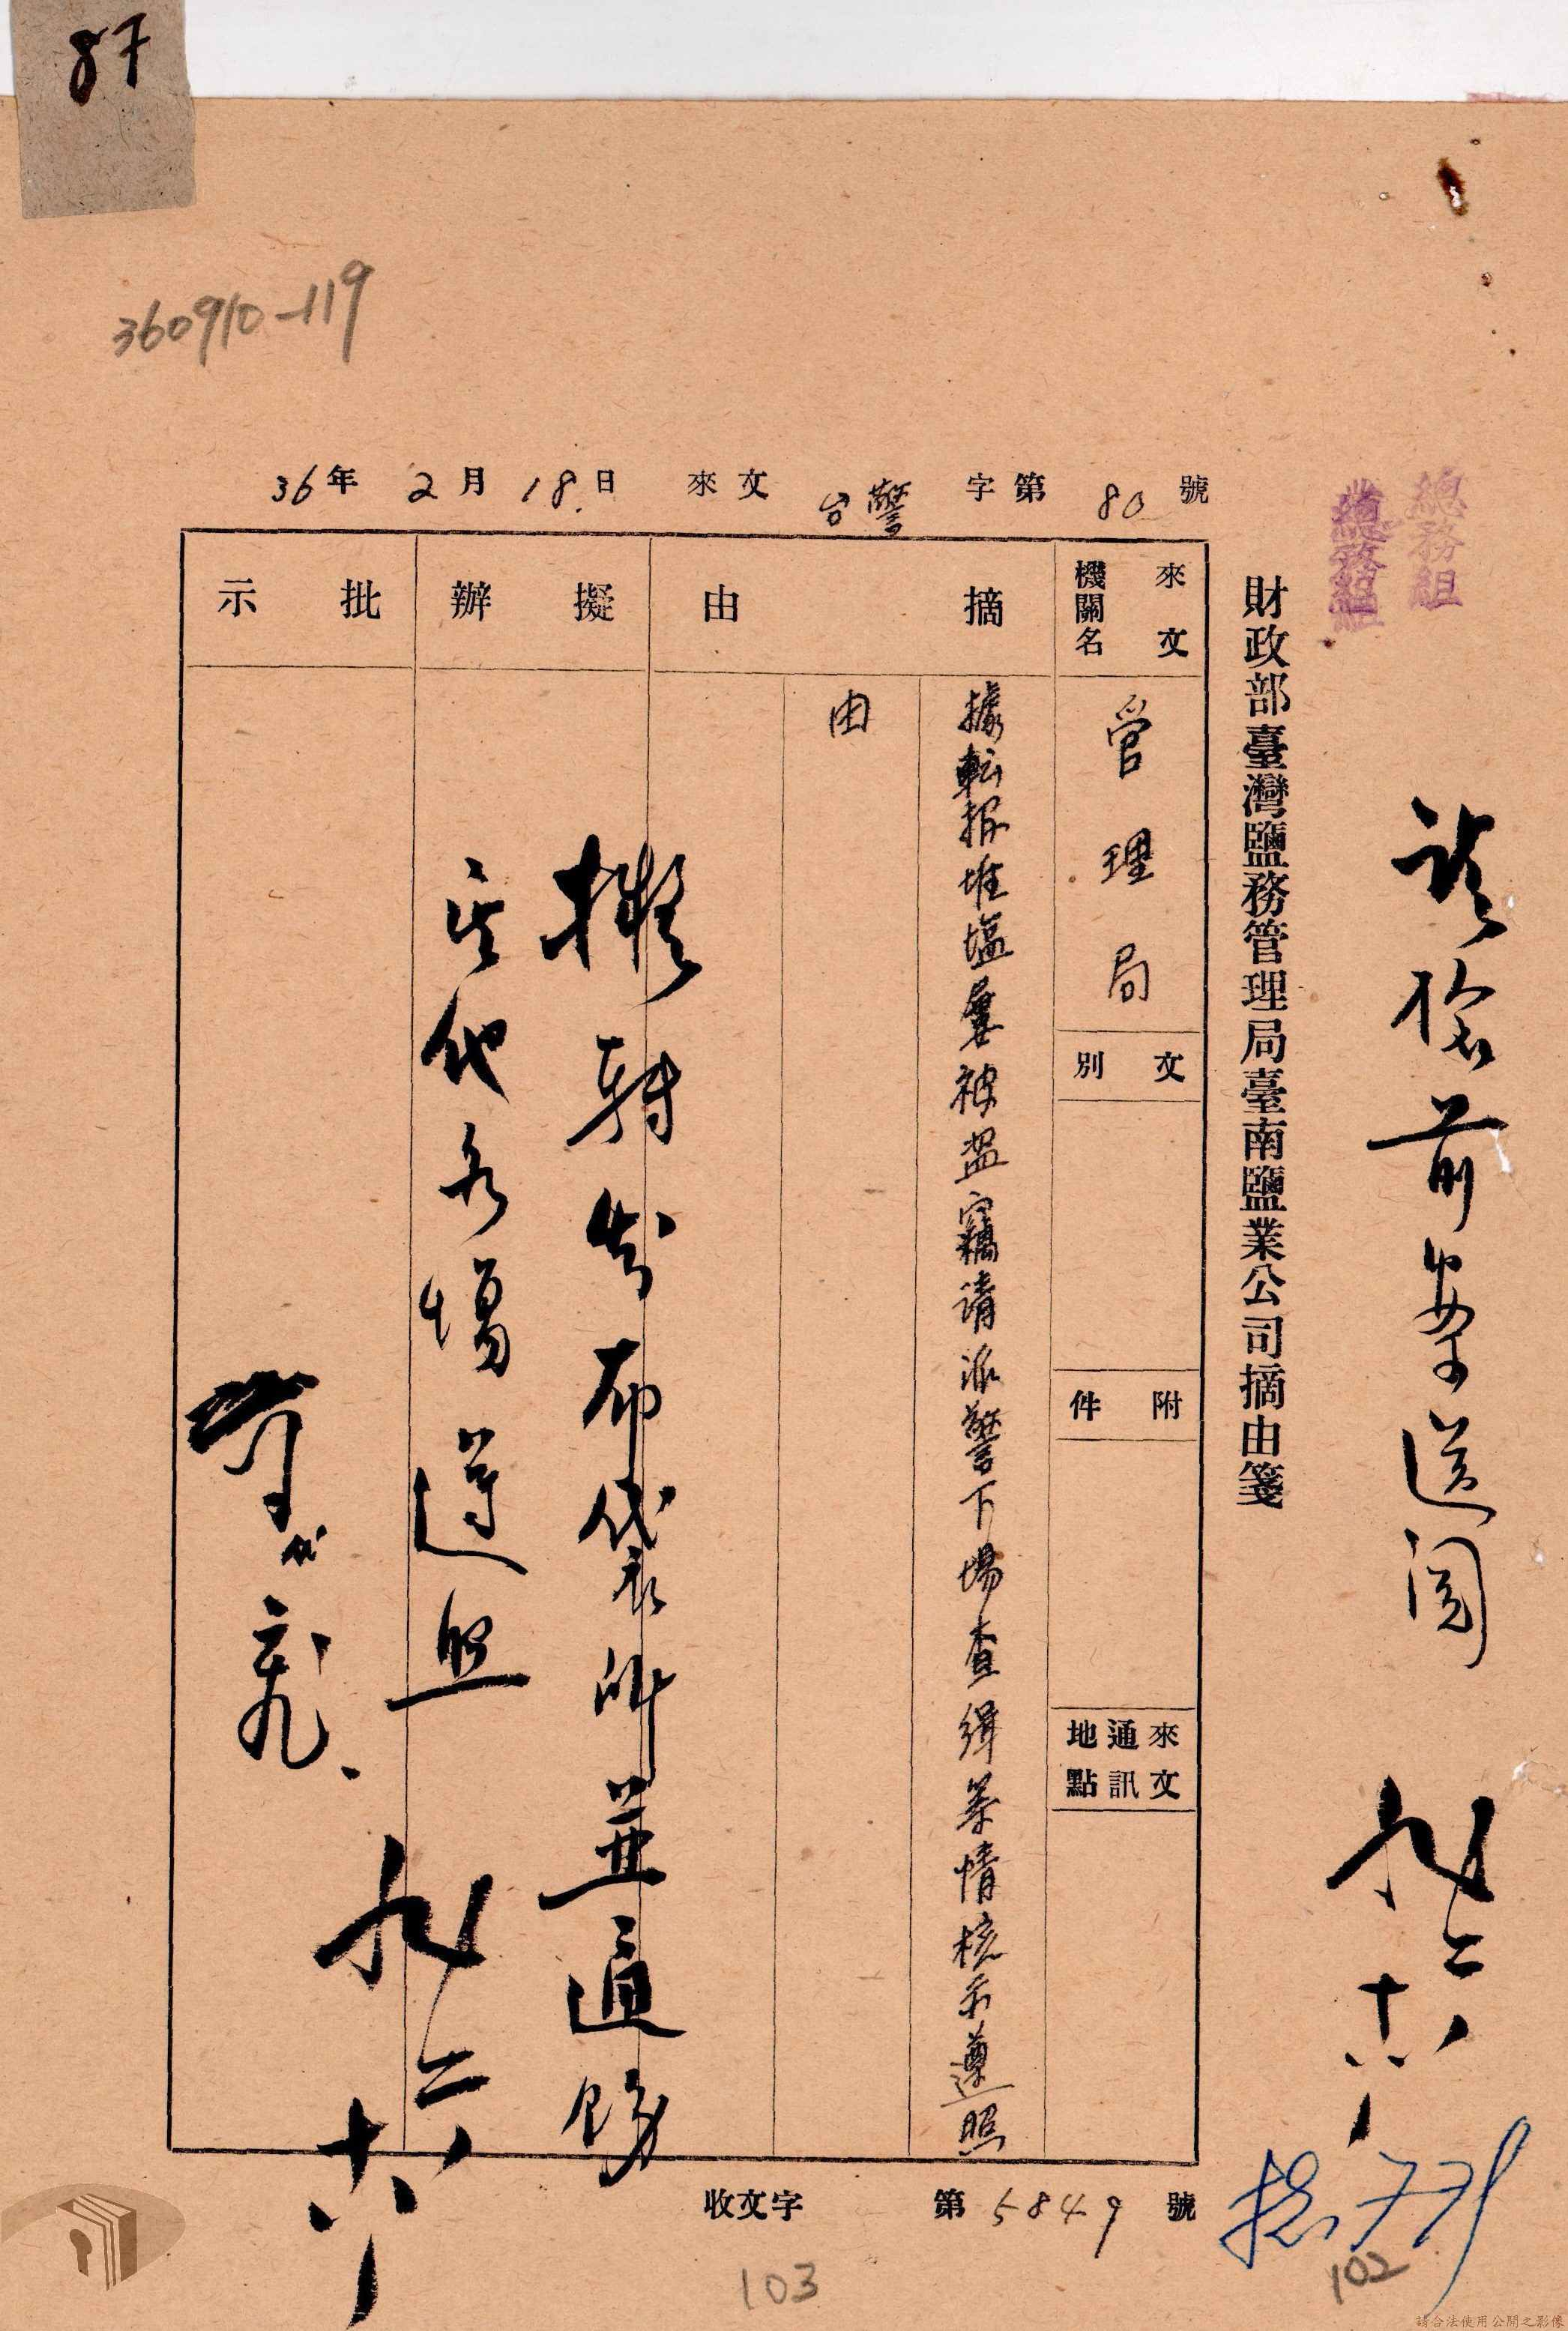 87
360910-119
總務組
總務組
請檢前案送閱
十八
財政部臺灣鹽務管理局臺南鹽業公司摘由箋
36年2月18日 來文 台警 字第 80 號
來文機關名
管理局
文別
附件
來文通訊地點
摘由
據転报堆塩屢被盜竊請派警下場查緝等情核示遵照
由
擬辦
擬轉知布袋所並通飭
其他各場遵照
十八
批示
收文字 第5849號
103
102
請合法使用公開之影像